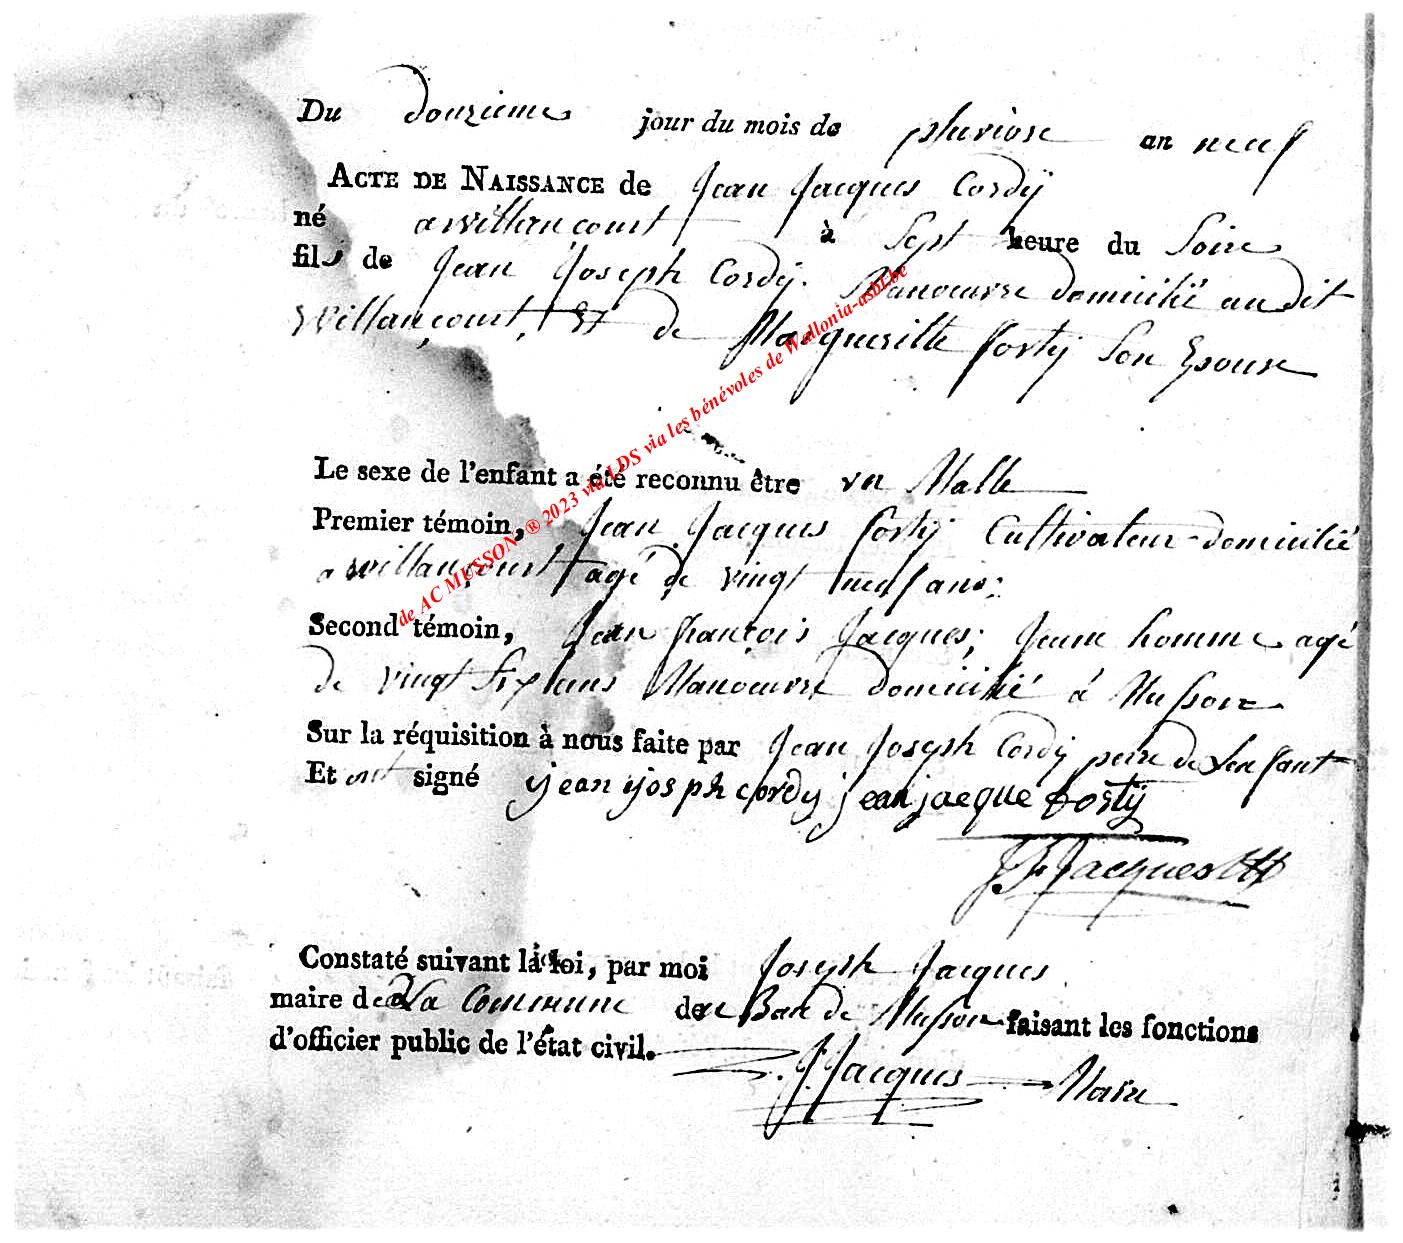 Du douzieme jour du mois de pluviose an neuf
ACTE DE NAISSANCE de Jean Jacques Cordÿ
né a willancourt à Sept heure du Soire
fils de Jean Joseph Cordÿ. Manoeuvre domicilié au dit
Willancourt, Et de Margueritte forty Son Epouse
Le sexe de l'enfant a été reconnu être un Malle
Premier témoin, Jean Jacques fortÿ Cultivateur domicilié
a willancourt agé de vingt neuf ans;
Second témoin, Jean françois Jacques; Jeune homme agé
de vingt Six ans Manoeuvre domicilié á Musson
Sur la réquisition à nous faite par Jean Joseph Cordÿ pere de Lenfant
Et ont signé yjean yjosph cordÿ jean jacque fortÿ
J F Jacques
Constaté suivant la loi, par moi Joseph Jacques
maire de La Commune de Ban de Musson faisant les fonctions
d'officier public de l'état civil. J. Jacques Mare
de AC MUSSON ® 2023 via LDS via les bénévoles de Wallonia-asbl.be